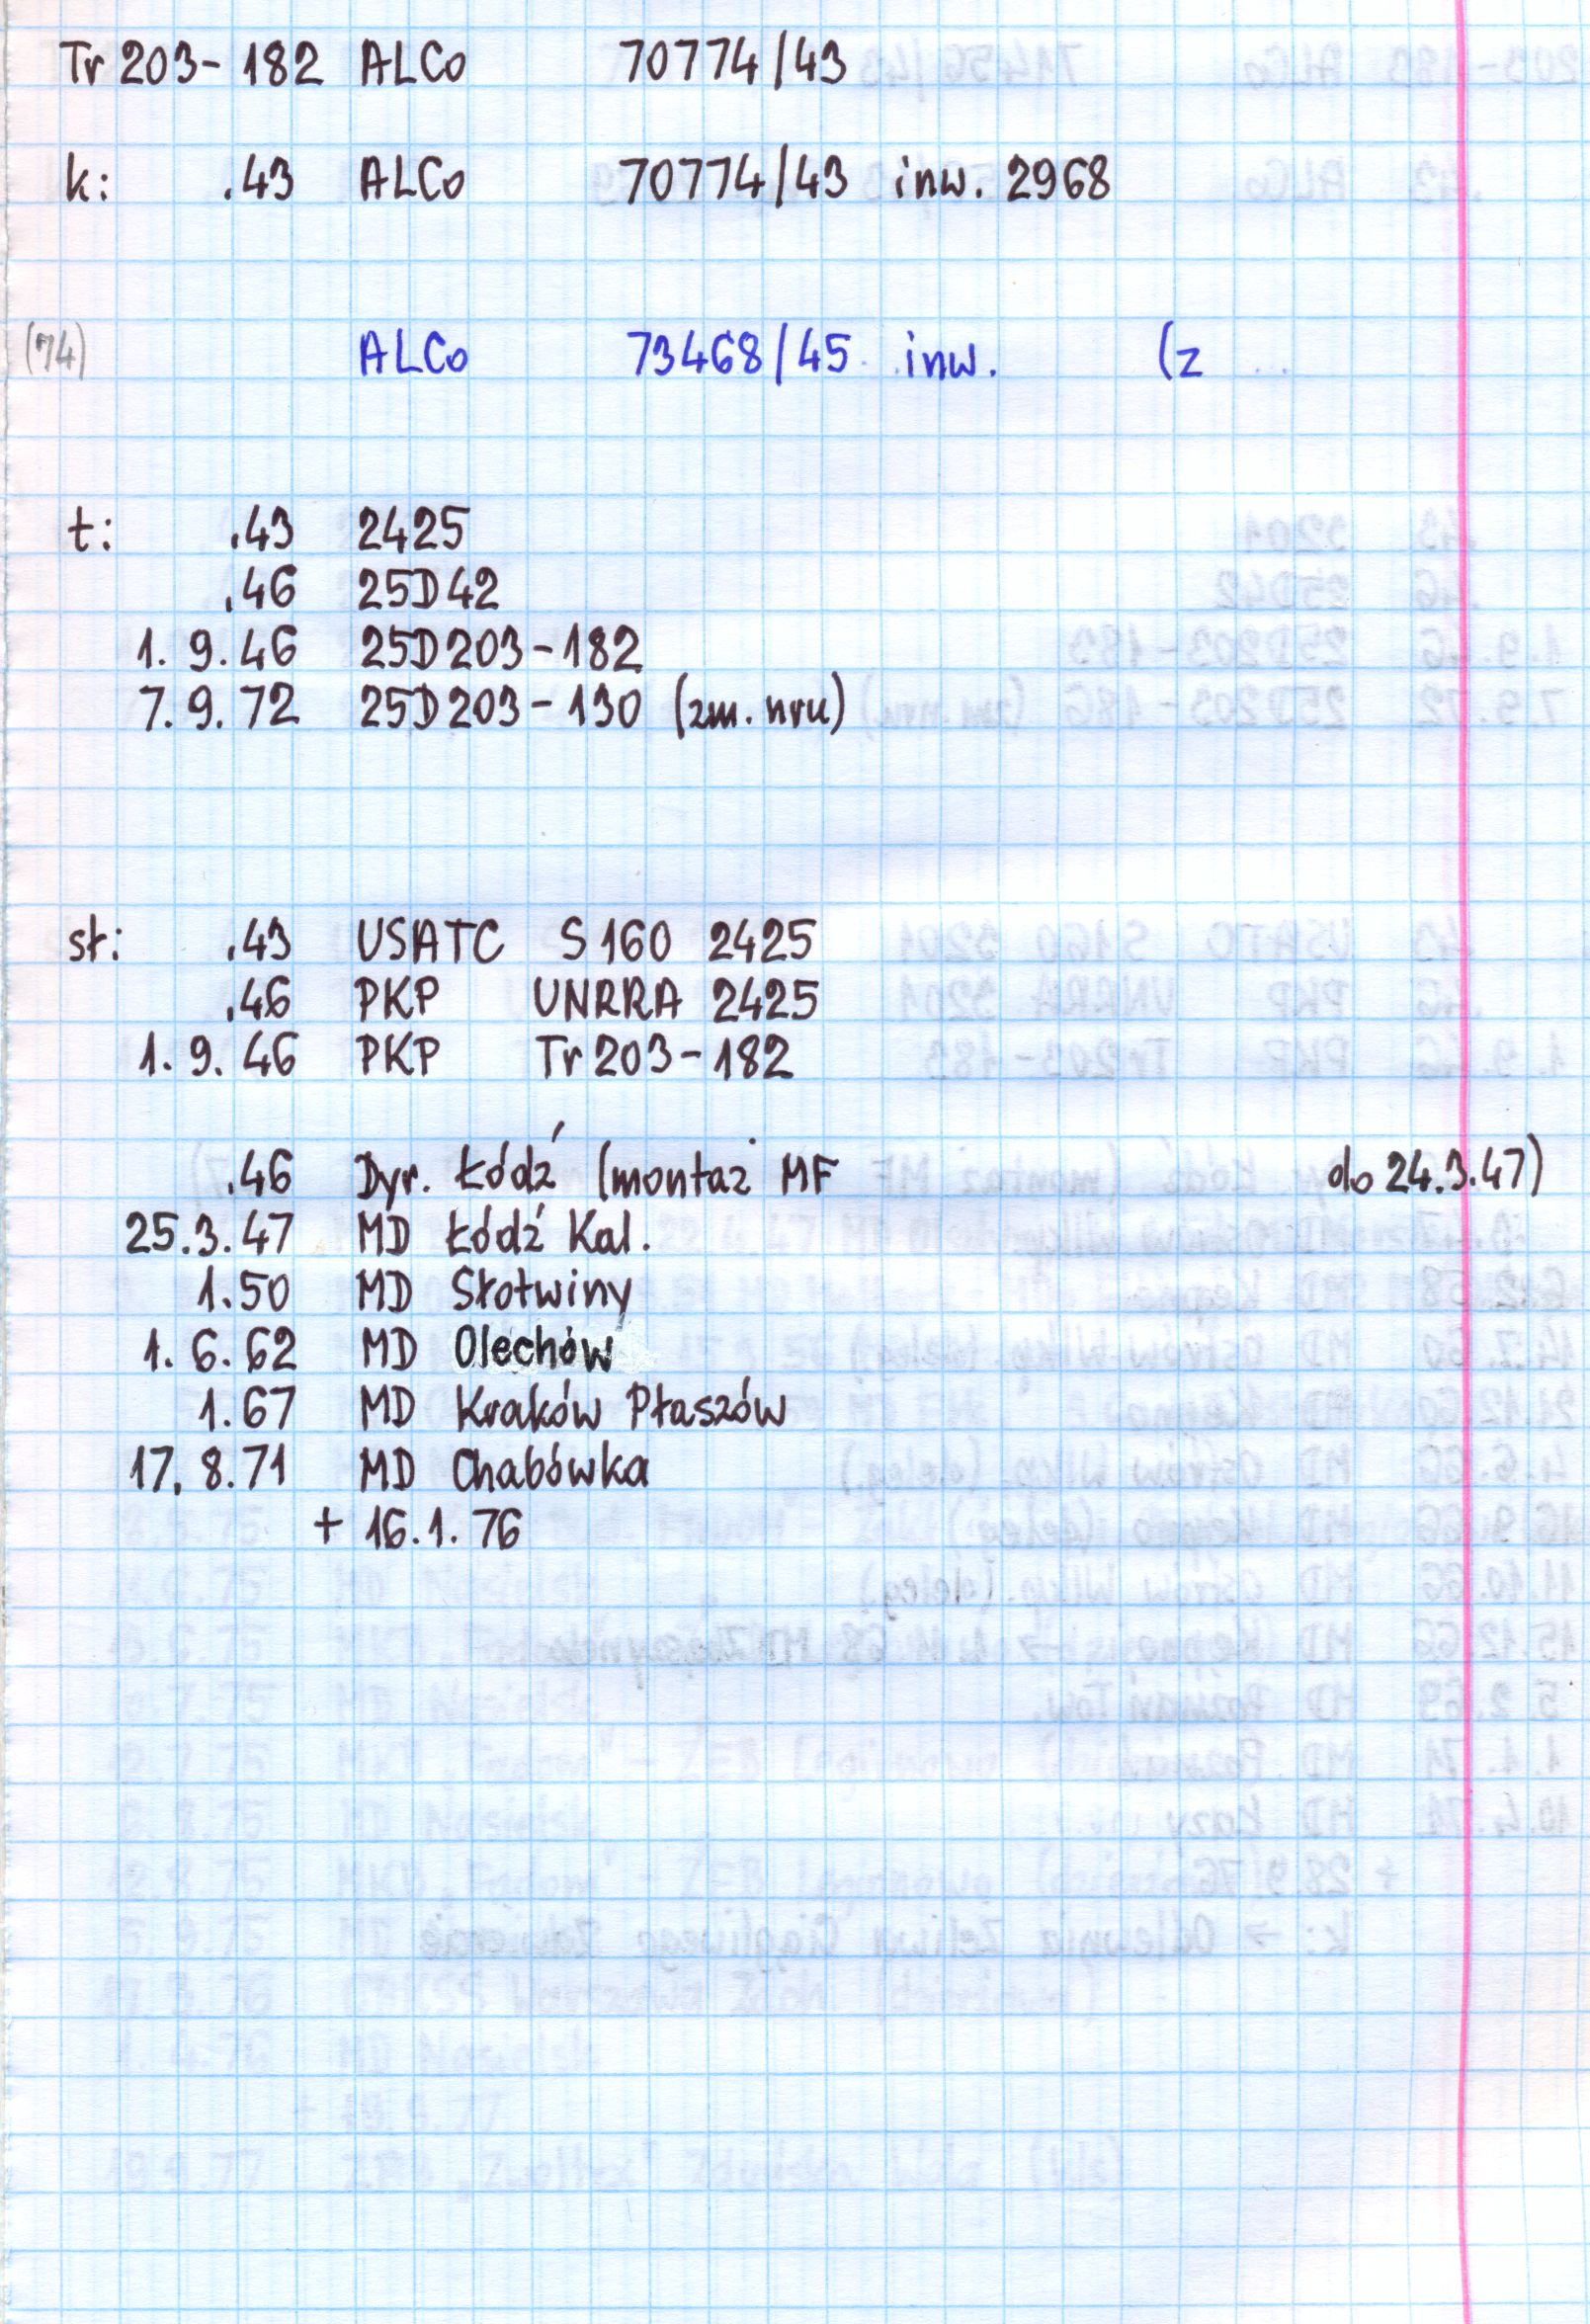 Tr 203-182 ALCo 70774/43
k: .43 ALCo 70774/43 inw. 2968
(74) ALCo 73468/45 inw. (z
t: .43 2425
.46 25D42
1. 9. 46 25D203-182
7. 9. 72 25D203-130 (zm. nru)
sł: .43 USATC S160 2425
.46 PKP UNRRA 2425
1. 9. 46 PKP Tr203-182
.46 Dyr. Łódź (montaż MF do 24.3.47)
25.3.47 MD Łódź Kal.
1.50 MD Słotwiny
1. 6. 62 MD Olechów
1.67 MD Kraków Płaszów
17. 8.71 MD Chabówka
+ 16.1.76